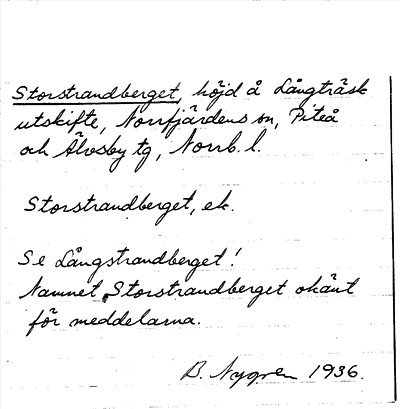 Storstrandberget, höjd å Långträsk
utskifte, Norrfjärdens sn, Piteå
och Älvsby tg, Norrb. l.
Storstrandberget, ek.
Se Långstrandberget!
Namnet Storstrandberget okänt
för meddelarna.
B. Nygren 1936.